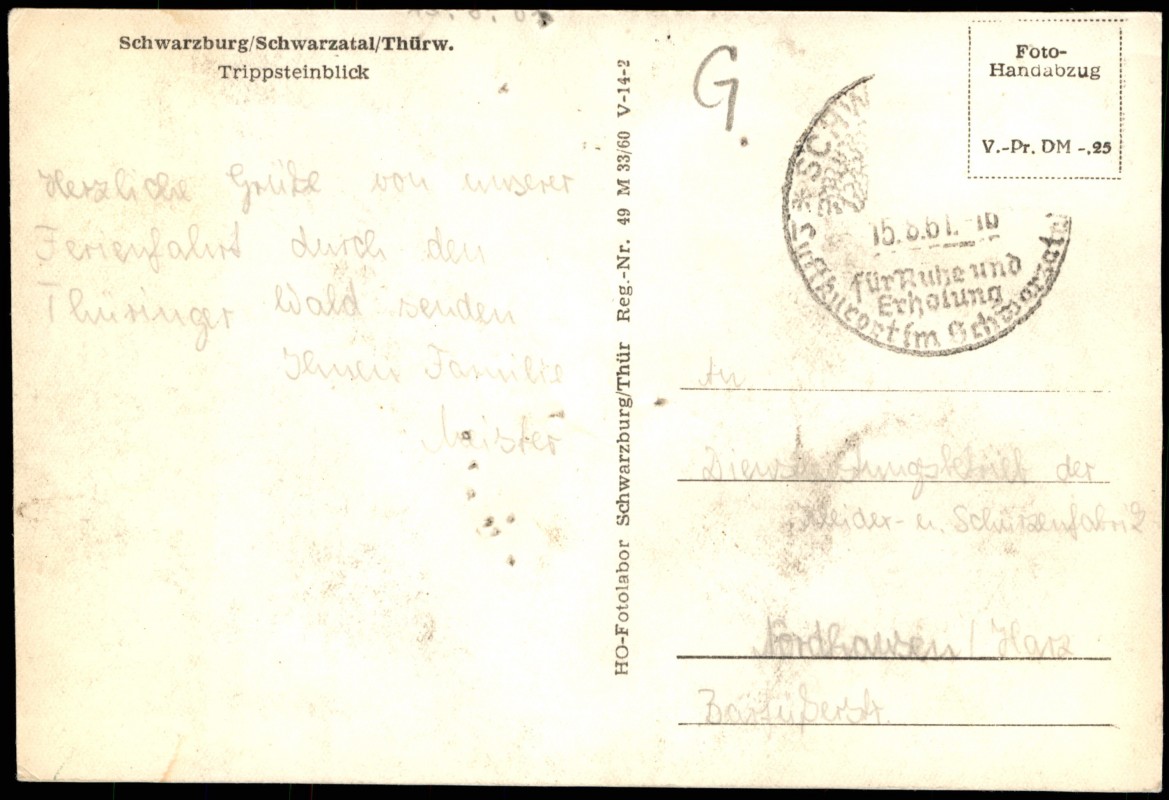 Schwarzburg/Schwarzatal/Thürw.
Trippsteinblick
Herzliche Grüße von unserer
Ferienfahrt durch den
Thüringer Wald senden
Ihnen Familie
Meister
HO-Fotolabor Schwarzburg/Thür Reg.-Nr. 49 M 33/60 V-14-2
G.
Foto-
Handabzug
V.-Pr. DM -,25
* SCHW
15.8.61.-10
für Ruhe und
Erholung
Luftkurort im Schwarzatal
An
der
Kleider- u. Schürzenfabrik
Nordhausen / Harz
Barfüßerstr.